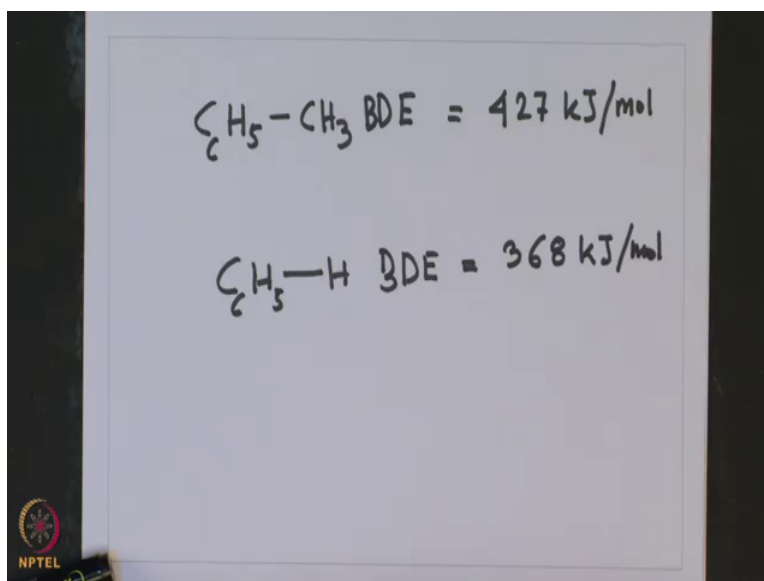 C6H5-CH3 BDE = 427 kJ/mol
C6H5—H BDE = 368 kJ/mol
NPTEL